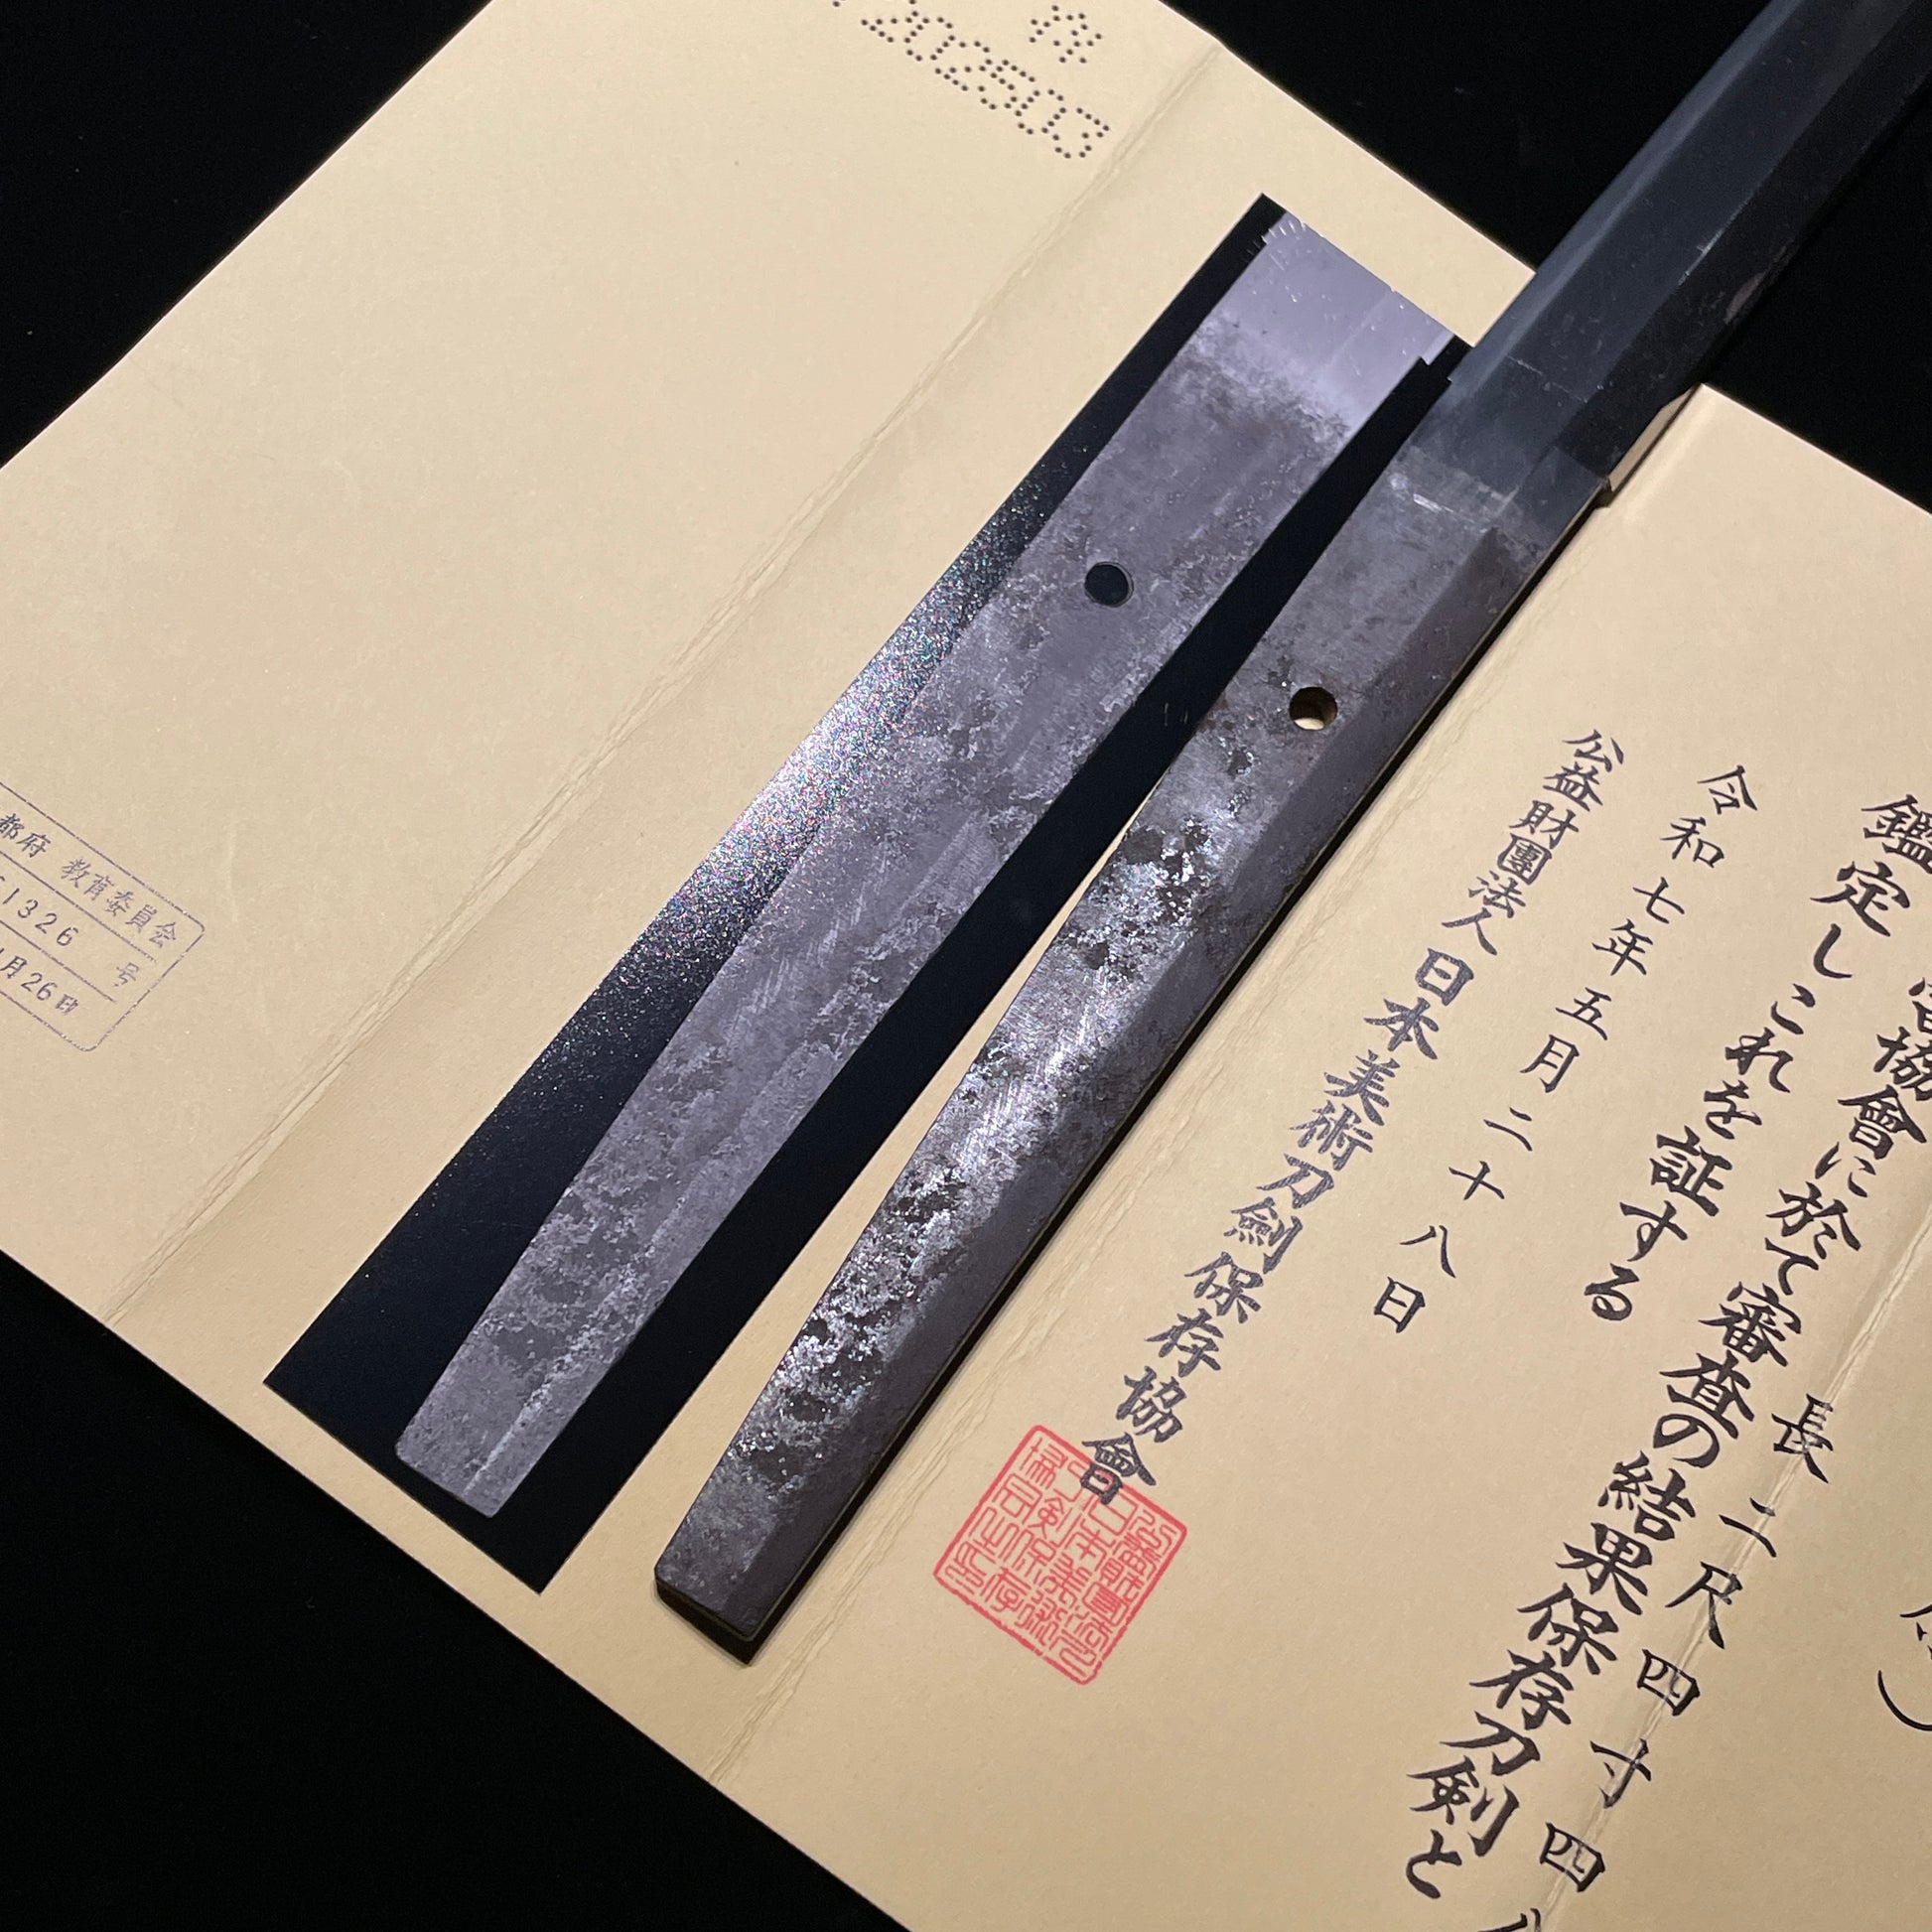 長 二尺四寸四
當協會に於て審査の結果保存刀剣と
鑑定しこれを証する
令和七年五月二十八日
公益財團法人日本美術刀劍保存協會
202503
都府 教育委員会
1326 号
月26日